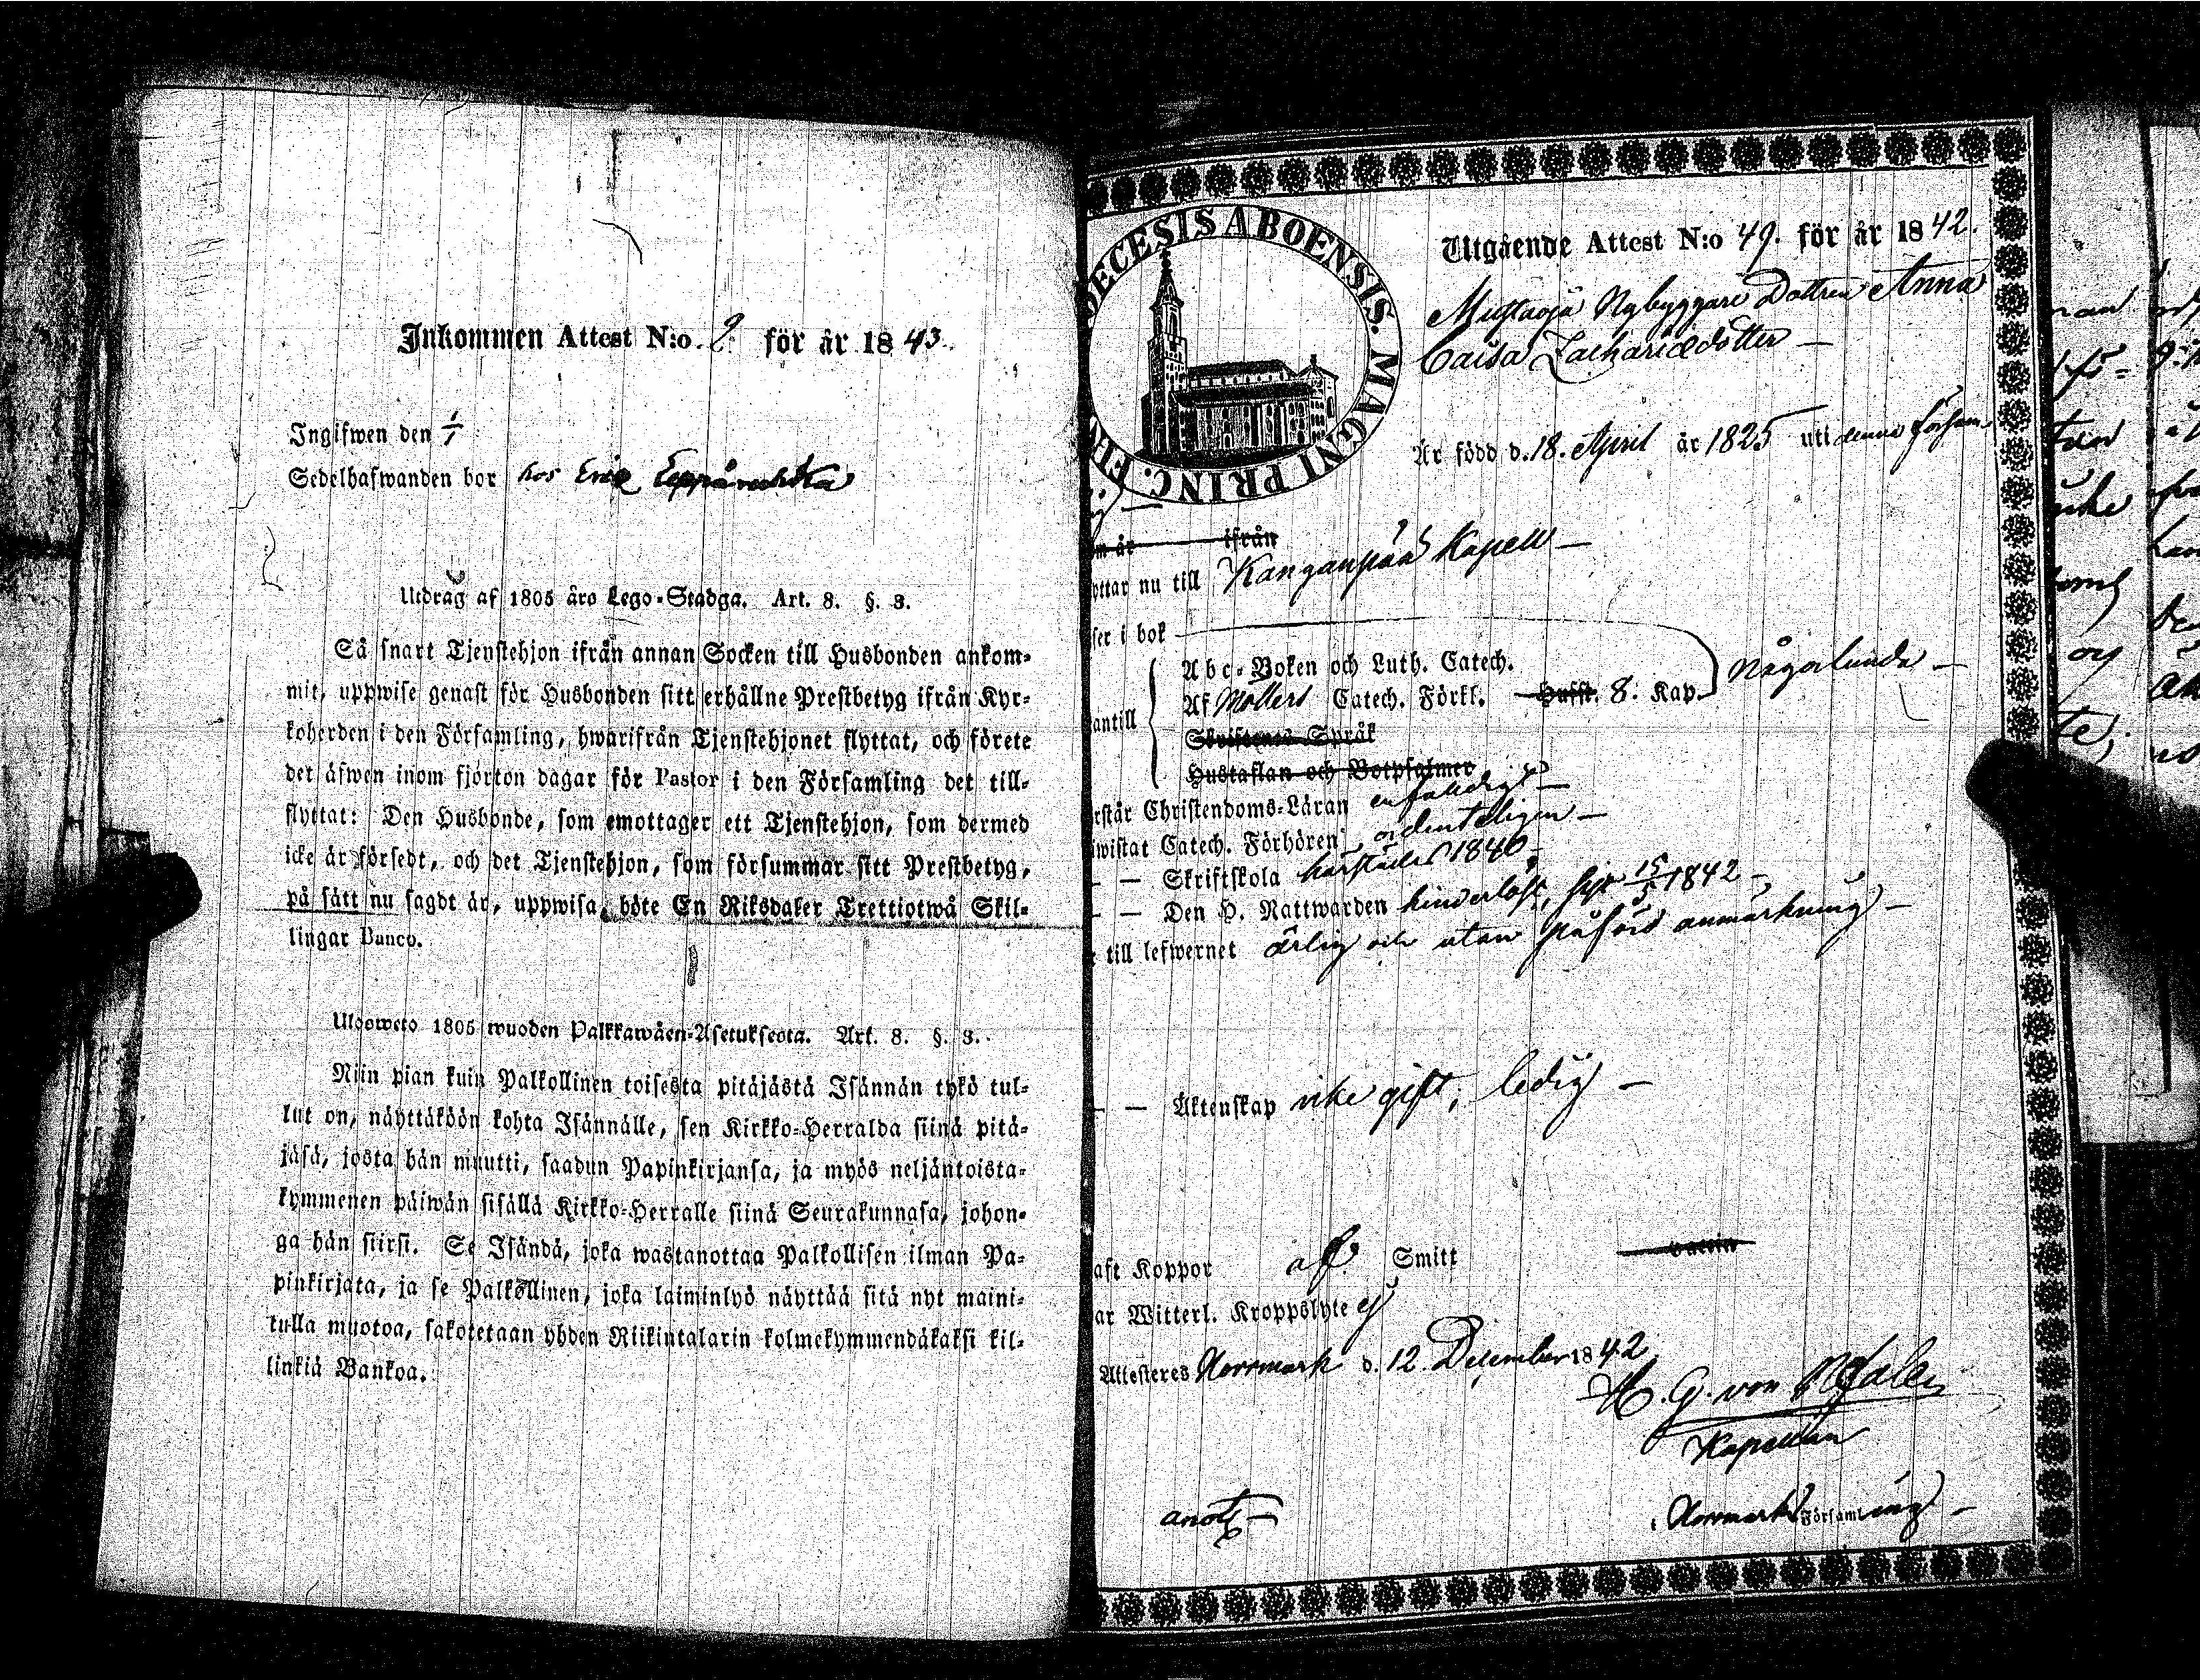 Inkommen Attest N:o 2. för år 1843.
Ingifwen den 1/1
Sedelhafwanden bor hos Eric
Utdrag af 1805 års Lego-Stadga. Art. 8. §. 3.
Så snart Tjenstehjon ifrån annan Socken till Husbonden ankom-
mit, uppwise genast för Husbonden sitt erhållne Prestbetyg ifrån Kyr-
koherden i den Församling, hwarifrån Tjenstehjonet flyttat, och förete
det äfwen inom fjorton dagar för Pastor i den Församling det till-
flyttat: Den Husbonde, som emottager ett Tjenstehjon, som dermed
icke är försedt, och det Tjenstehjon, som försummar sitt Prestbetyg,
på sätt nu sagdt är, uppwisa, böte En Riksdaler Trettiotwå Skil-
lingar Banco.
Ulosweto 1805 wuoden Palkkawäen-Asetuksesta. Art. 8. §. 3.
Niin pian kuin Palkollinen toisesta pitäjästä Isännän tykö tul-
lut on, näyttäköön kohta Isännälle, sen Kirkko-Herralda siinä pitä-
jäsä, josta hän muutti, saadun Papinkirjansa, ja myös neljäntoista-
kymmenen päiwän sisällä Kirkko-Herralle siinä Seurakunnasa, johon-
ga hän siirsi. Se Isändä, joka wastanottaa Palkollisen ilman Pa-
pinkirjata, ja se Palkollinen, joka laiminlyö näyttää sitä nyt maini-
tulla muotoa, sakotetaan yhden Riikintalarin kolmekymmendäkaksi kil-
linkiä Bankoa.
DECESIS ABOENSIS. MAGNI PRINC. FIN
Utgående Attest N:o 49. för år 1842.
Nybyggare Dottren Anna
Caisa Zachariædotter
Är född d. 18. April år 1825 uti denna Församl
m år ifrån
yttar nu till Kanganpää Kapell
ser i bok
Abc-Boken och Luth. Catech.
Af Möllers Catech. Förkl. Hufst. 8. Kap. någorlunda
antill
Skriftenes Språk
Hustaflan och Botpsalmer
rstår Christendoms-Läran enfaldigt
iwistat Catech. Förhören ordenteligen
Skriftskola härstädes 1840
Den H. Nattwarden hinderlöst, sist 15/5 1842
till lefwernet ärlig och utan påförd anmärkning
Äktenskap icke gift, ledig
aft Koppor af Smitt Vaccin
ar Witterl. Kroppslyte ej
Attesteres Norrmark d. 12. December 1842
H. G. von
Kapellan
anot
i Norrmark Församling